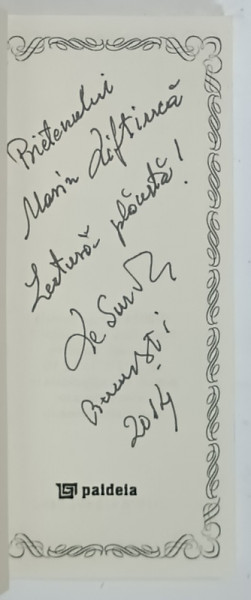 Prietenului
Marin Ziftincă
Lectură plăcută!
București
2014
paideia